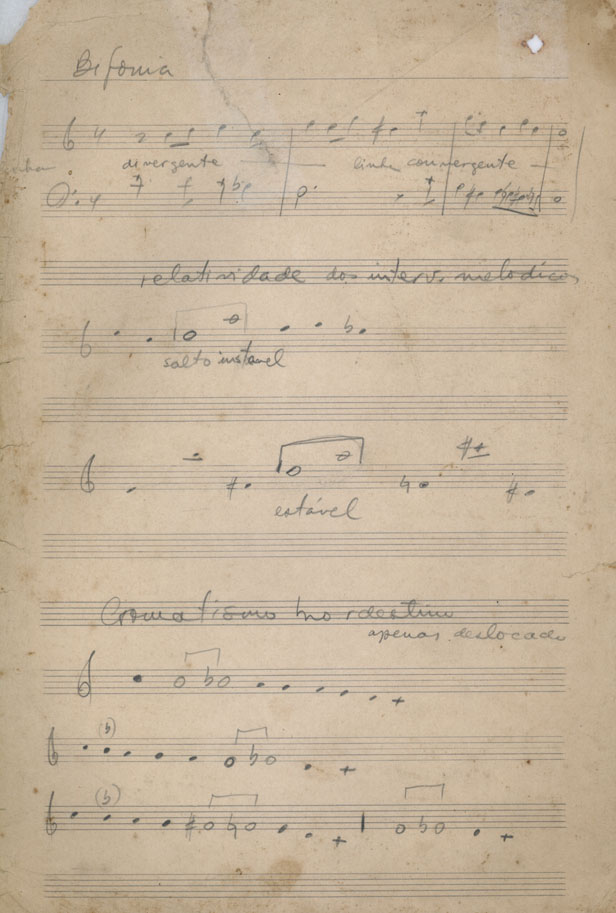 Bifonia
linha divergente — linha convergente —
relatividade dos interv. melodicos
salto instavel
estável
Cromatismo nordestino
apenas deslocado